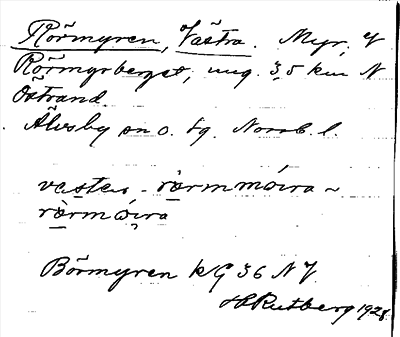 Rörmyren, Västra. Myr, V
Rörmyrberget, ung. 3,5 km N
Östrand.
Älvsby sn o. tg. Norrb. l.
vester - rörmmóira ~
rörmóira
Börmyren kG 36 NJ.
H Rutberg 1928.